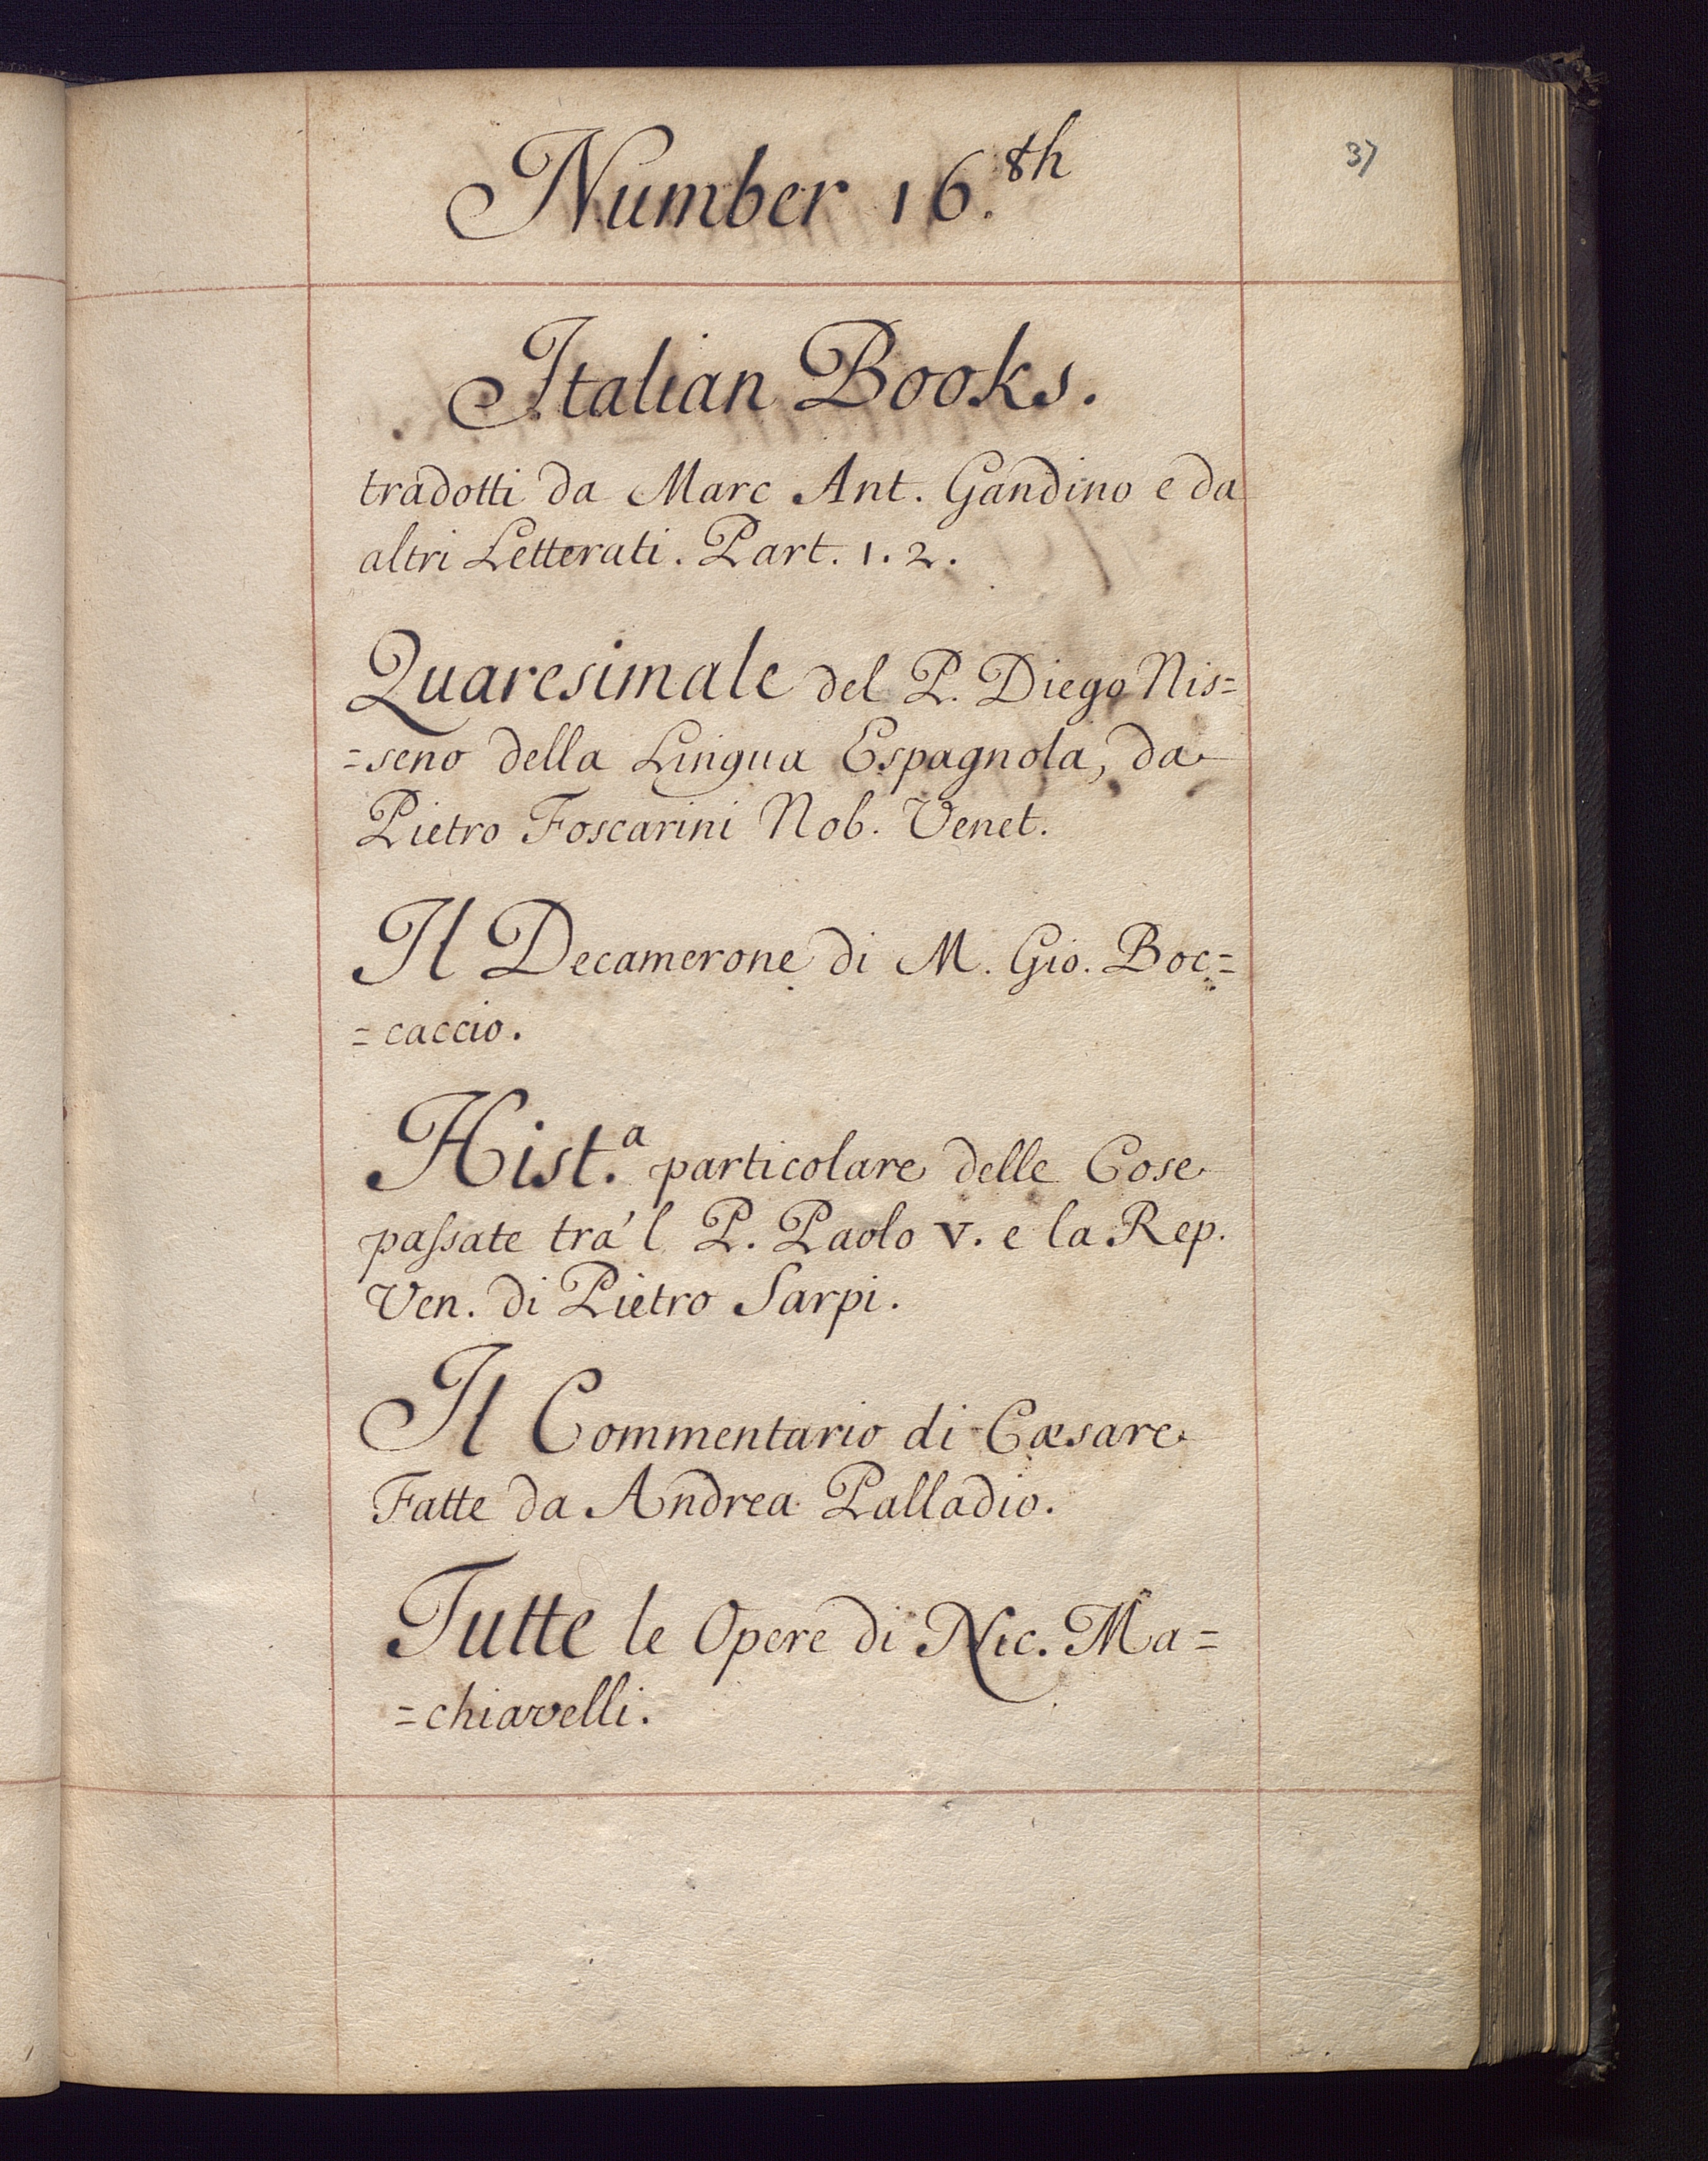 Number 16.th
37
Italian Books.
tradotti da Marc Ant. Gandino e da
altri Letterati. Part. 1. 2.
Quaresimale del P. Diego Nis=
=seno della Lingua Espagnola, da
Pietro Foscarini Nob. Venet.
Il Decamerone di M. Gio. Boc=
=caccio.
Hist.a particolare delle Cose
paſsate tra'l P. Paolo V. e la Rep.
Ven. di Pietro Sarpi.
Il Commentario di Cæsare
Fatte da Andrea Palladio.
Tutte le Opere di Nic. Ma=
=chiavelli.